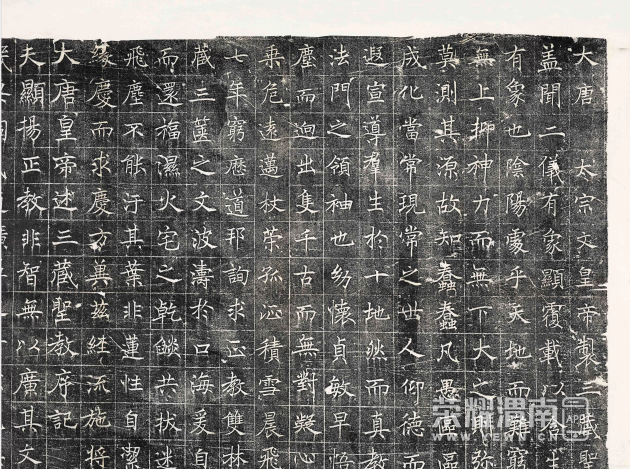 大唐 太宗文皇帝製三藏聖
盖聞二儀有象顯覆載以含生
有象也陰陽處乎天地而難窮
無上抑神力而無下大之則弥
莫測其源故知蠢蠢凡愚區區
成化當常現常之世人仰德而
遐宣導羣生於十地然而真教
法門之領袖也幼懷貞敏早悟
塵而迥出隻千古而無對凝心
乗危遠邁杖策孤征積雪晨飛
七年窮歷道邦詢求正教雙林
蔵三篋之文波濤於口海爰自
而還福濕火宅之乾燄共拔迷
飛塵不能汙其葉非蓮性自潔
緣慶而求慶方冀茲經流施将
大唐皇帝述三藏聖教序記
夫顯揚正教非智無以廣其文
荣耀渭南 APP